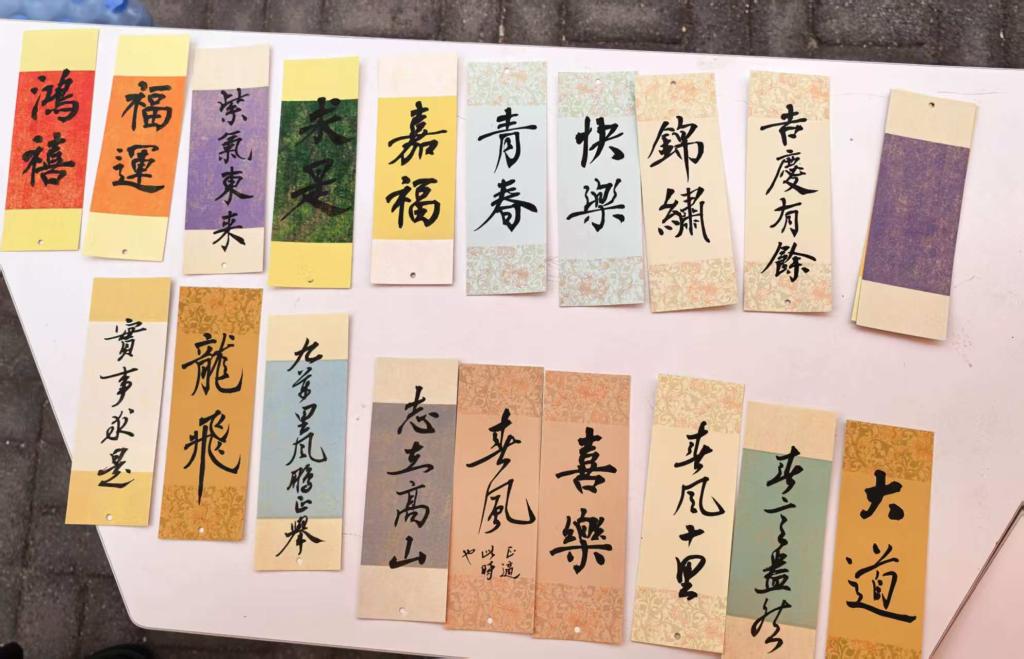 鴻禧
福運
紫氣東来
求是
嘉福
青春
快樂
錦繡
吉慶有餘
實事求是
龍飛
九萬里風鵬正舉
志在高山
春風
正逼
此時
也
喜樂
春风十里
春意盎然
大道